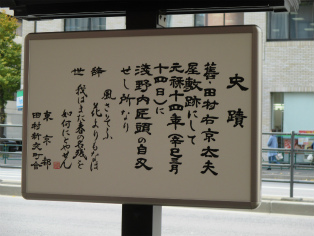 史蹟
舊・田村右京太夫
屋敷跡にして
元祿十四年(辛巳三月
十四日)に
淺野内匠頭の自刃
せし所なり
辞世
風さそふ
花よりもなほ
我はまた春の名残を
如何にとやせん
東京都
田村新交町会